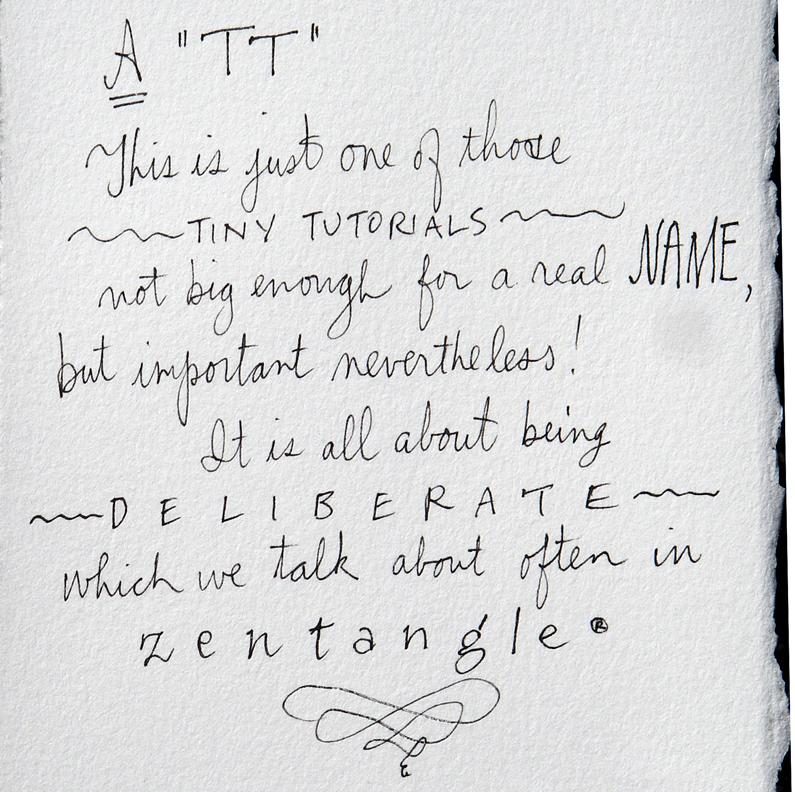 A "TT"
This is just one of those
TINY TUTORIALS
not big enough for a real NAME,
but important nevertheless!
It is all about being
DELIBERATE
which we talk about often in
zentangle®